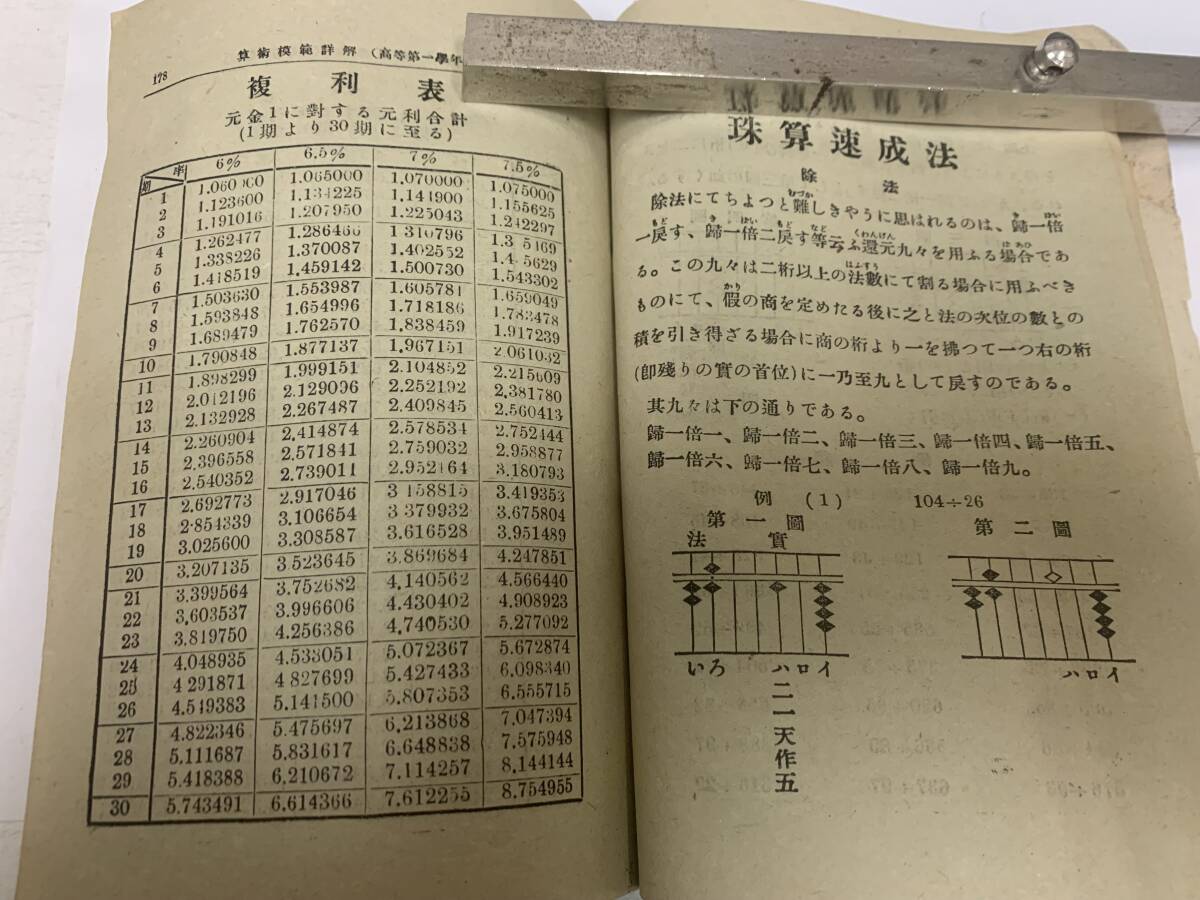 178
算術模範詳解 (高等第一學年
複利表
元金1に對する元利合計
(1期より30期に至る)
期 率 6% 6.5% 7% 7.5%
1 1.060000 1.065000 1.070000 1.075000
2 1.123600 1.134225 1.144900 1.155625
3 1.191016 1.207950 1.225043 1.242297
4 1.262477 1.286466 1.310796 1.335469
5 1.338226 1.370087 1.402552 1.435629
6 1.418519 1.459142 1.500730 1.543302
7 1.503630 1.553987 1.605781 1.659049
8 1.593848 1.654996 1.718186 1.783478
9 1.689479 1.762570 1.838459 1.917239
10 1.790848 1.877137 1,967151 2.061032
11 1.898299 1.999151 2.104852 2.215609
12 2.012196 2.129096 2.252192 2.381780
13 2.132928 2.267487 2.409845 2.560413
14 2.260904 2.414874 2.578534 2.752444
15 2.396558 2.571841 2.759032 2.958877
16 2.540352 2.739011 2.952164 3.180793
17 2.692773 2.917046 3 158815 3.419353
18 2.854339 3.106654 3 379932 3.675804
19 3.025600 3.308587 3.616528 3.951489
20 3.207135 3.523645 3.869684 4.247851
21 3.399564 3.752682 4.140562 4.566440
22 3.603537 3.996606 4.430402 4.908923
23 3.819750 4.256386 4.740530 5.277092
24 4.048935 4.533051 5.072367 5.672874
25 4 291871 4 827699 5.427433 6.098340
26 4.549383 5.141500 5.807353 6.555715
27 4.822346 5.475697 6,213868 7.047394
28 5.111687 5.831617 6.648838 7.575948
29 5.418388 6.210672 7.114257 8.144144
30 5.743491 6.614366 7.612255 8.754955
珠算速成法
除法
除法にてちょつと難しきやうに思はれるのは、歸一倍
一戾す、歸一倍二戾す等云ふ還元九々を用ふる場合であ
る。この九々は二桁以上の法數にて割る場合に用ふべき
ものにて、假の商を定めたる後に之と法の次位の數との
積を引き得ざる場合に商の桁より一を拂つて一つ右の桁
(卽殘りの實の首位)に一乃至九として戾すのである。
其九々は下の通りである。
歸一倍一、歸一倍二、歸一倍三、歸一倍四、歸一倍五、
歸一倍六、歸一倍七、歸一倍八、歸一倍九。
例 (1) 104÷26
第一圖 第二圖
法 實
いろ ハロイ ハロイ
二一天作五